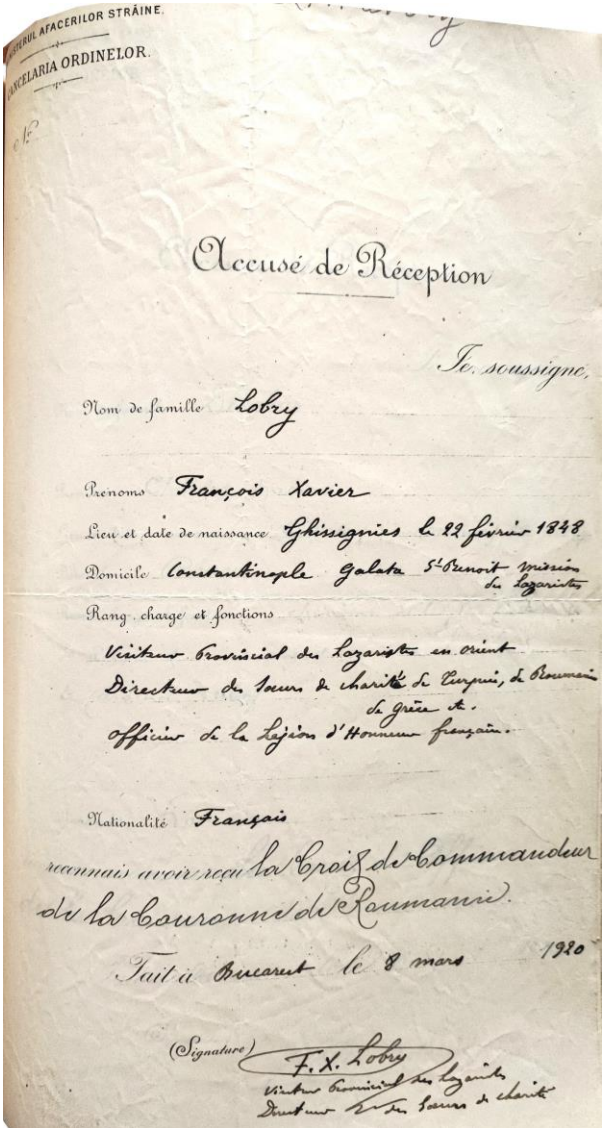 MINISTERUL AFACERILOR STRĂINE.
CANCELARIA ORDINELOR.
No
Accusé de Réception
Je, soussigné,
Nom de famille Lobry
Prénoms François Xavier
Lieu et date de naissance Ghissignies le 22 février 1848
Domicile Constantinople Galata St Benoit mission
des Lazaristes
Rang, charge et fonctions
Visiteur Provincial des Lazaristes en orient
Directeur des Soeurs de charité de Turquie, de Roumanie
de Grèce &.
officier de la Légion d'Honneur française.
Nationalité Français
reconnais avoir reçu la Croix de Commandeur
de la Couronne de Roumanie.
Fait à Bucarest le 8 mars 1920
(Signature) F. X. Lobry
Visiteur Provincial des Lazaristes
Directeur des Soeurs de charité